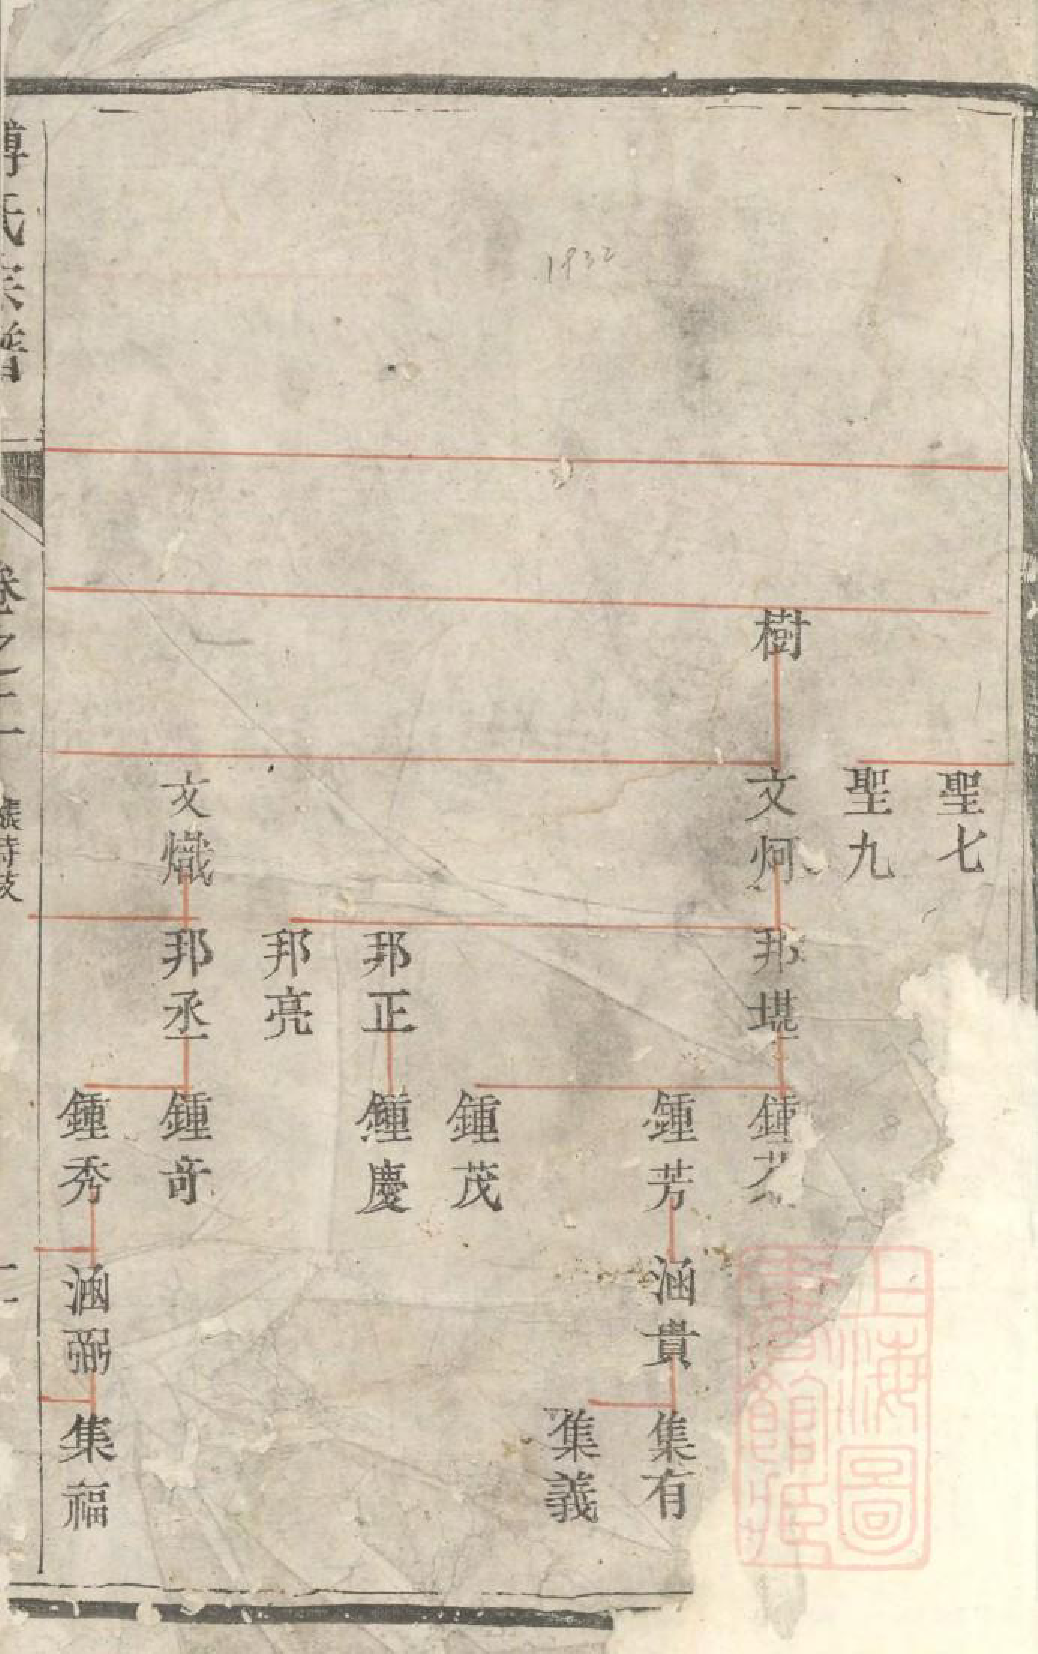 聖七
聖九
樹
文炯
邦堪
鍾
鍾芳
涵貴
集有
集義
鍾茂
邦正
鍾慶
邦亮
文熾
邦丞
鍾奇
鍾秀
涵弼
集福
氏宗譜
卷之二
1932
上海圖書館藏